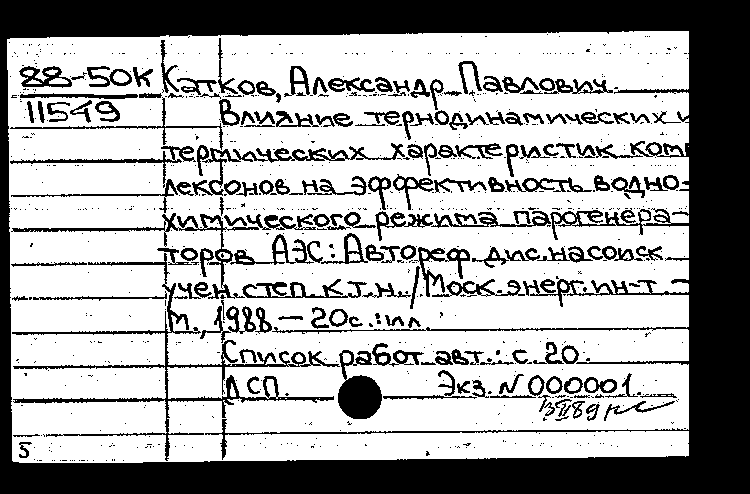 88-50К Катков, Александр Павлович.
11549 Влияние тернодинамических и
термических характеристик комп
лексонов на эффективность водно-
химического режима парогенера-
торов АЭС: Автореф. дис. на соиск.
учен. степ. к.т.н. / Моск. энерг. ин-т. -
М., 1988. - 20 с.: ил.
Список работ авт.: с. 20.
ЛСП. Экз. N 000001.
5